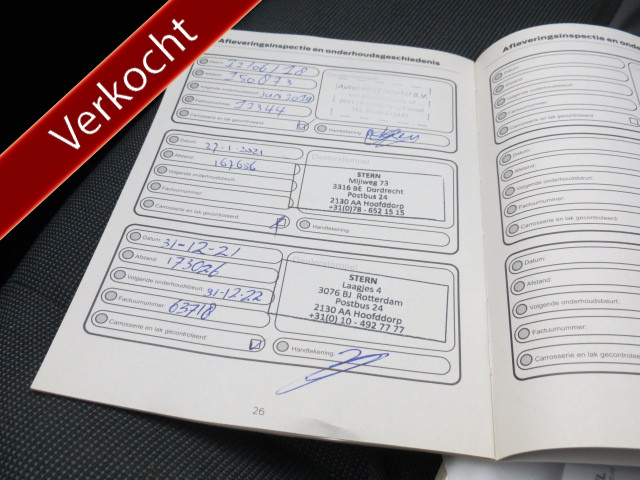 Verkocht
Afleveringsinspectie en onderhoudsgeschiedenis
Datum:
Afstand:
150873
Volgende onderhoudsbeurt:
Juni 2019
Factuurnummer:
12344
Carrosserie en lak gecontroleerd:
Handtekening:
Datum:
27-1-2021
Afstand:
167656
Volgende onderhoudsbeurt:
Factuurnummer:
Carrosserie en lak gecontroleerd:
STERN
Mijlweg 73
3316 BE Dordrecht
Postbus 24
2130 AA Hoofddorp
+31(0)78 - 652 15 15
Handtekening:
Datum: 31-12-21
Afstand: 173026
Volgende onderhoudsbeurt: 31-12-22
Factuurnummer: 63718
Carrosserie en lak gecontroleerd:
STERN
Laagjes 4
3076 BJ Rotterdam
Postbus 24
2130 AA Hoofddorp
+31(0) 10 - 492 77 77
Handtekening:
26
Afleveringsinspectie en
Datum:
Afstand:
Volgende onderhoudsbeurt:
Factuurnummer:
Carrosserie en lak gecontroleerd:
Datum:
Afstand:
Volgende onderhoudsbeurt:
Factuurnummer:
Carrosserie en lak gecontroleerd:
Datum:
Afstand:
Volgende onderhoudsbeurt:
Factuurnummer:
Carrosserie en lak gecontroleerd: